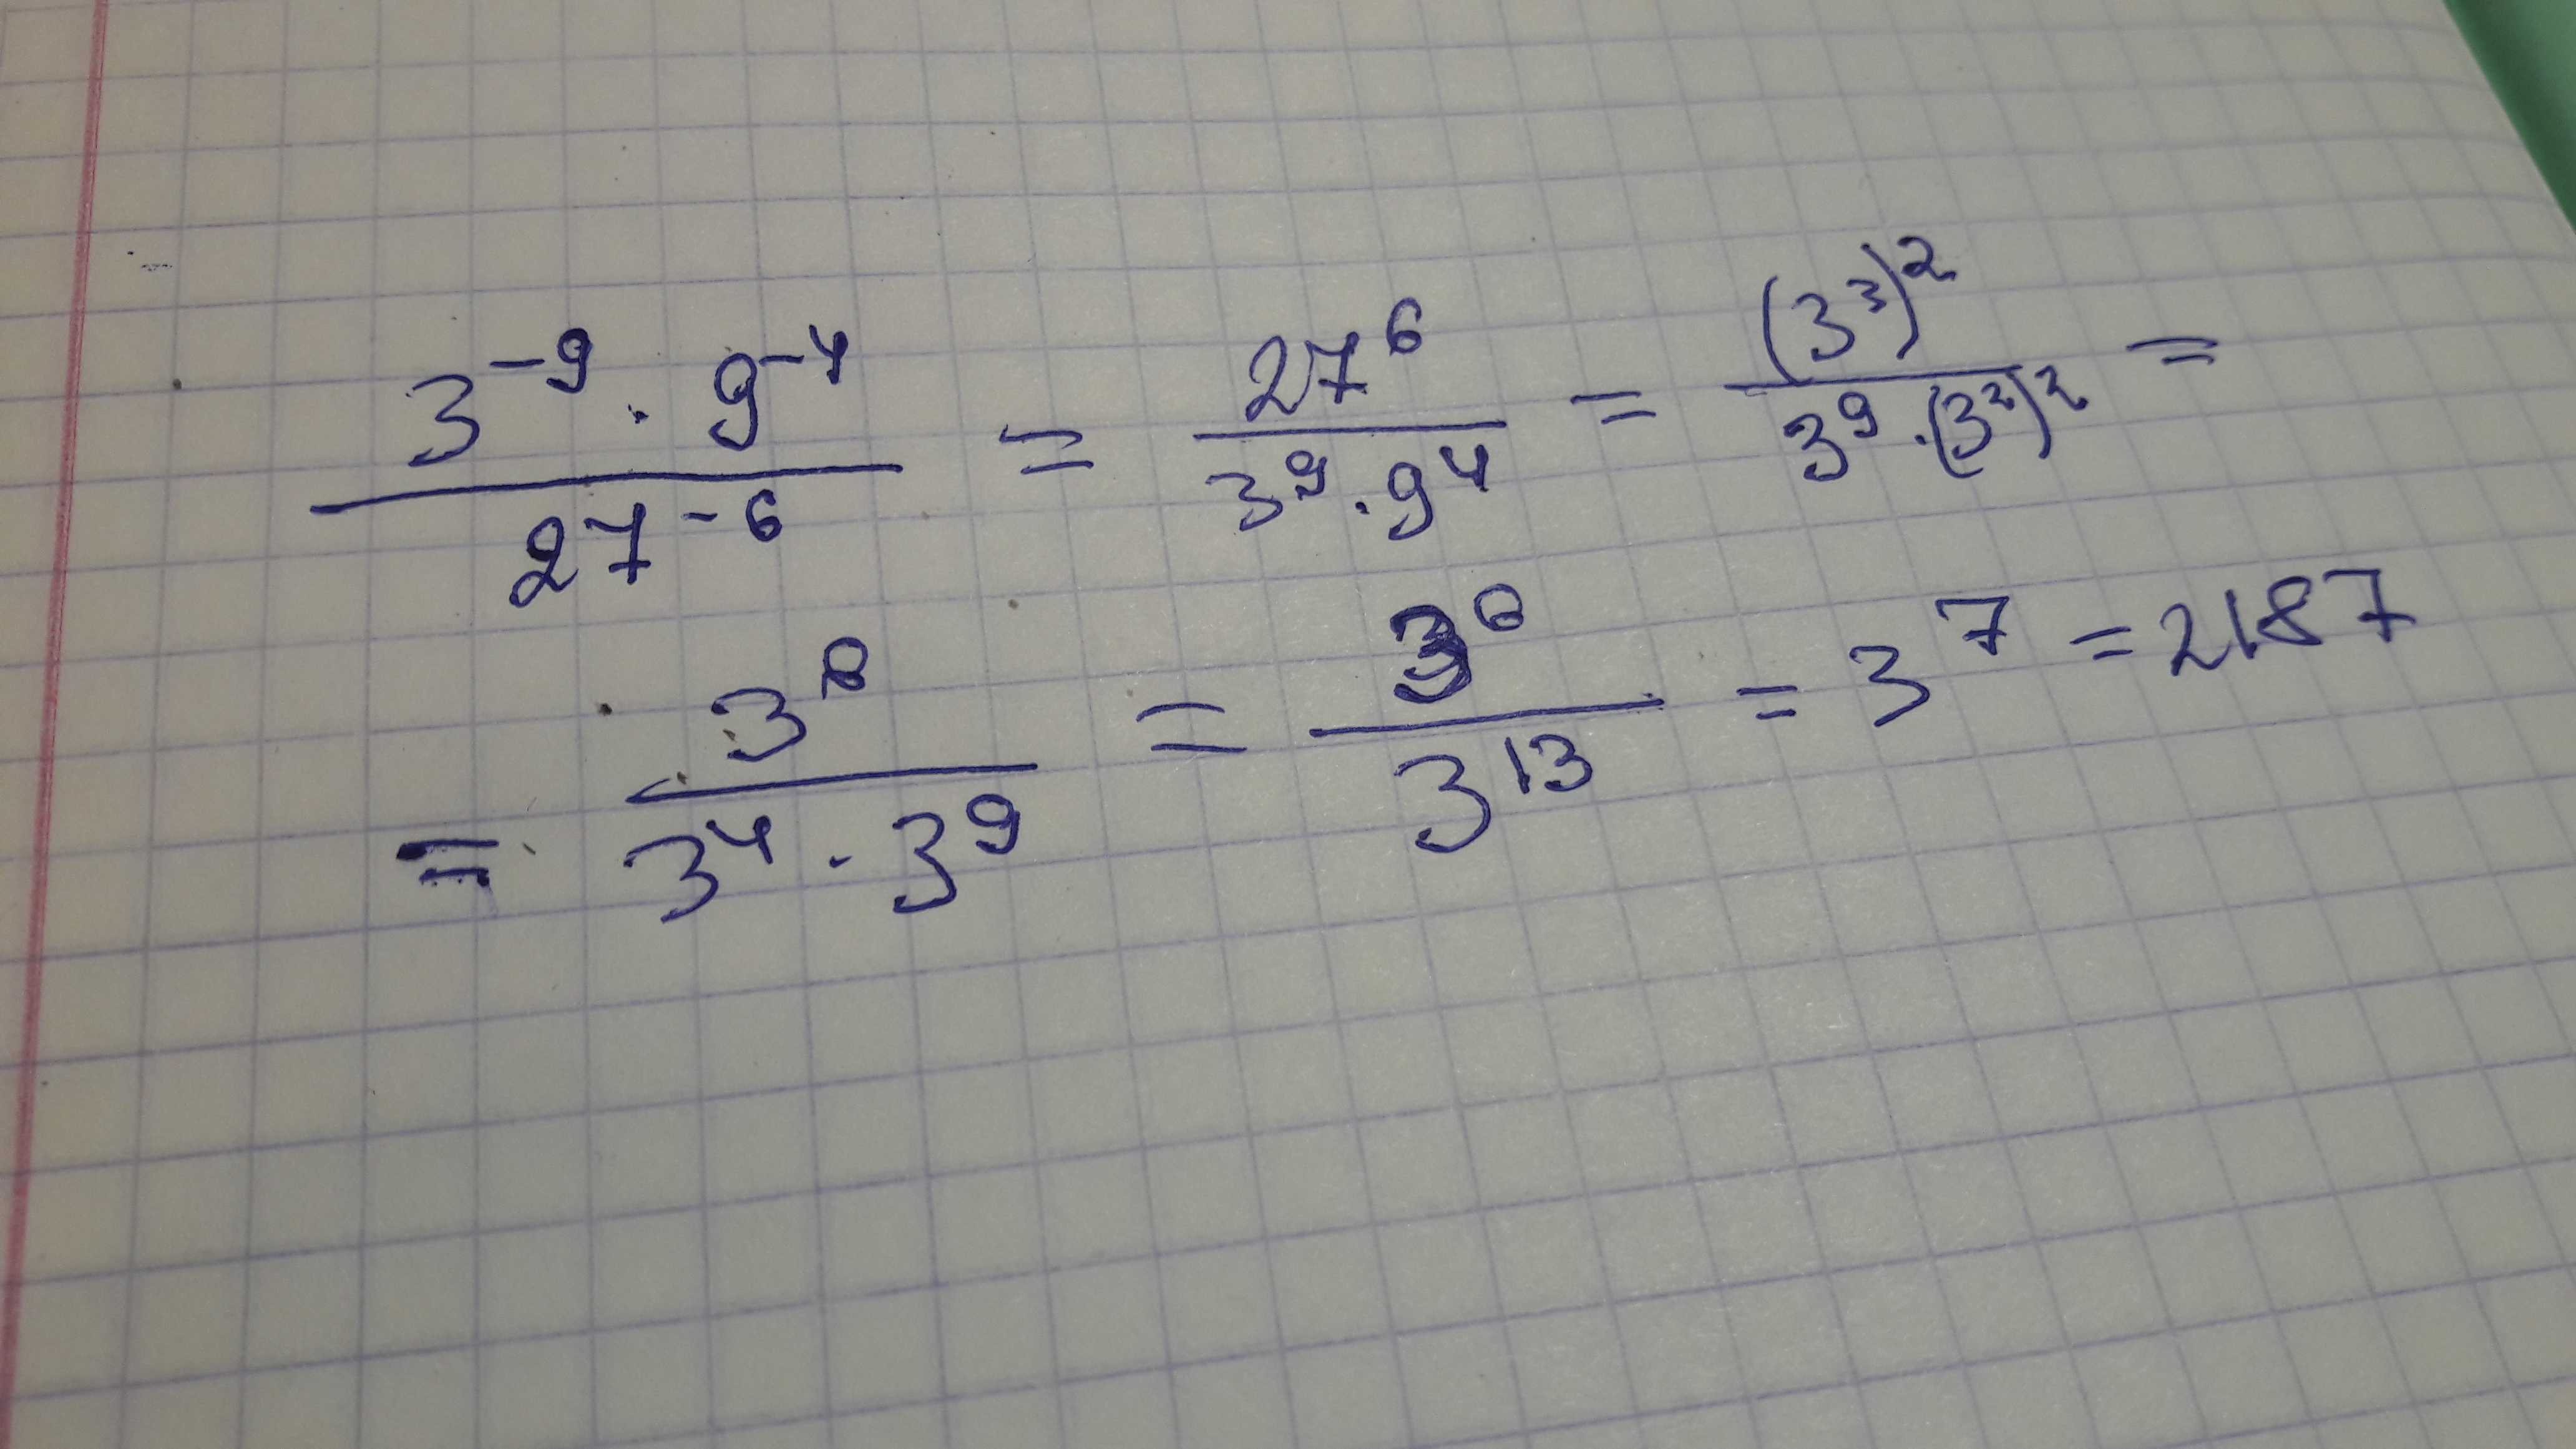 3^-9 · 9^-4 / 27^-6 = 27^6 / 3^9 · 9^4 = (3^3)^2 / 3^9 · (3^2)^2 =
= 3^8 / 3^4 · 3^9 = 3^6 / 3^13 = 3^7 = 2187